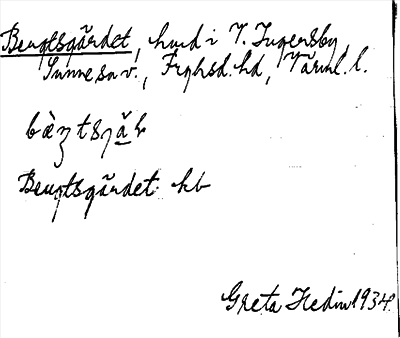 Bengtsgärdet, hmd i V. Ingersby,
Sunne sn v., Fryksd. hd, Värml. l.
Bengtsgärdet hb
Greta Hedin 1934.